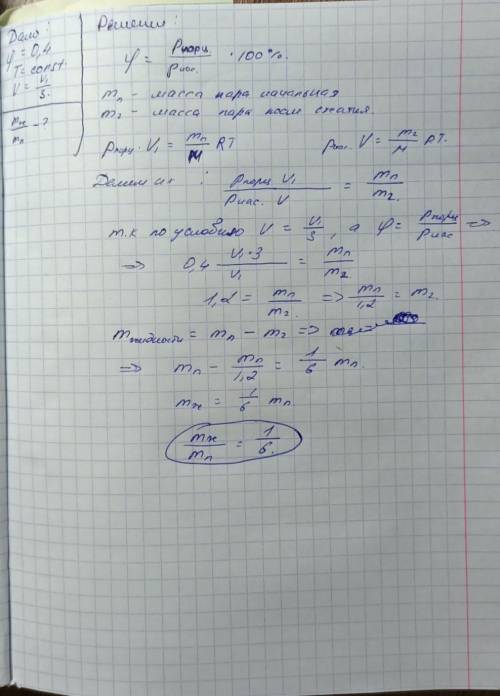 Дано:
φ = 0,4
T = const
V = V₁/3
mж/mп - ?
Решение:
φ = Pпарц./Pнас. · 100%.
mп - масса пара начальная
m₂ - масса пара после сжатия.
Pпарц. V₁ = mп/M RT
Pнас. V = m₂/M RT.
Делим их : Pпарц. V₁/Pнас. V = mп/m₂.
т.к по условию V = V₁/3, а φ = Pпарц/Pнас =>
=> 0,4 V₁·3/V₁ = mп/m₂
1,2 = mп/m₂ => mп/1,2 = m₂.
mжидкости = mп - m₂ =>
=> mп - mп/1,2 = 1/6 mп.
mж = 1/6 mп.
mж/mп = 1/6.